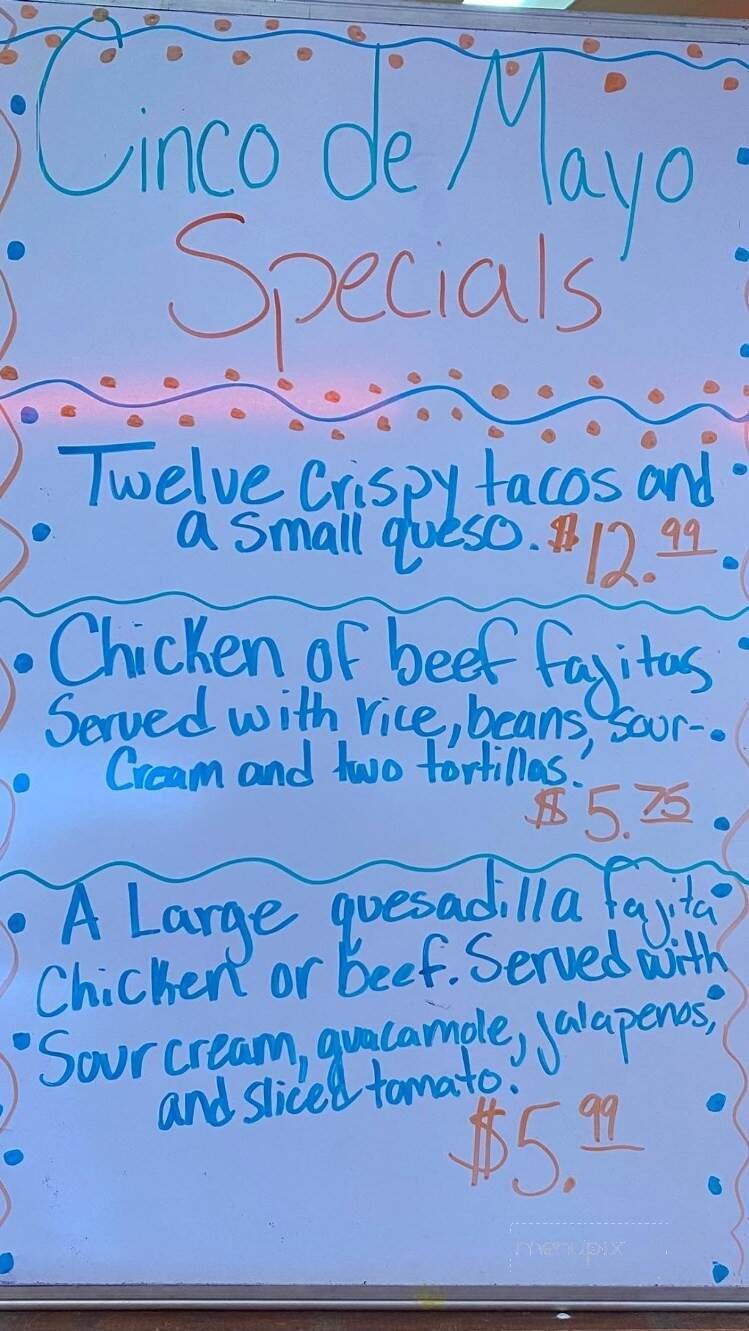 Cinco de Mayo
Specials
Twelve crispy tacos and
a small queso. $12.99
Chicken of beef fajitas
Served with rice, beans, sour-
cream and two tortillas.
$5.75
A Large quesadilla fajita
Chicken or beef. Served with
Sour cream, guacamole, jalapenos,
and sliced tomato.
$5.99
menupix